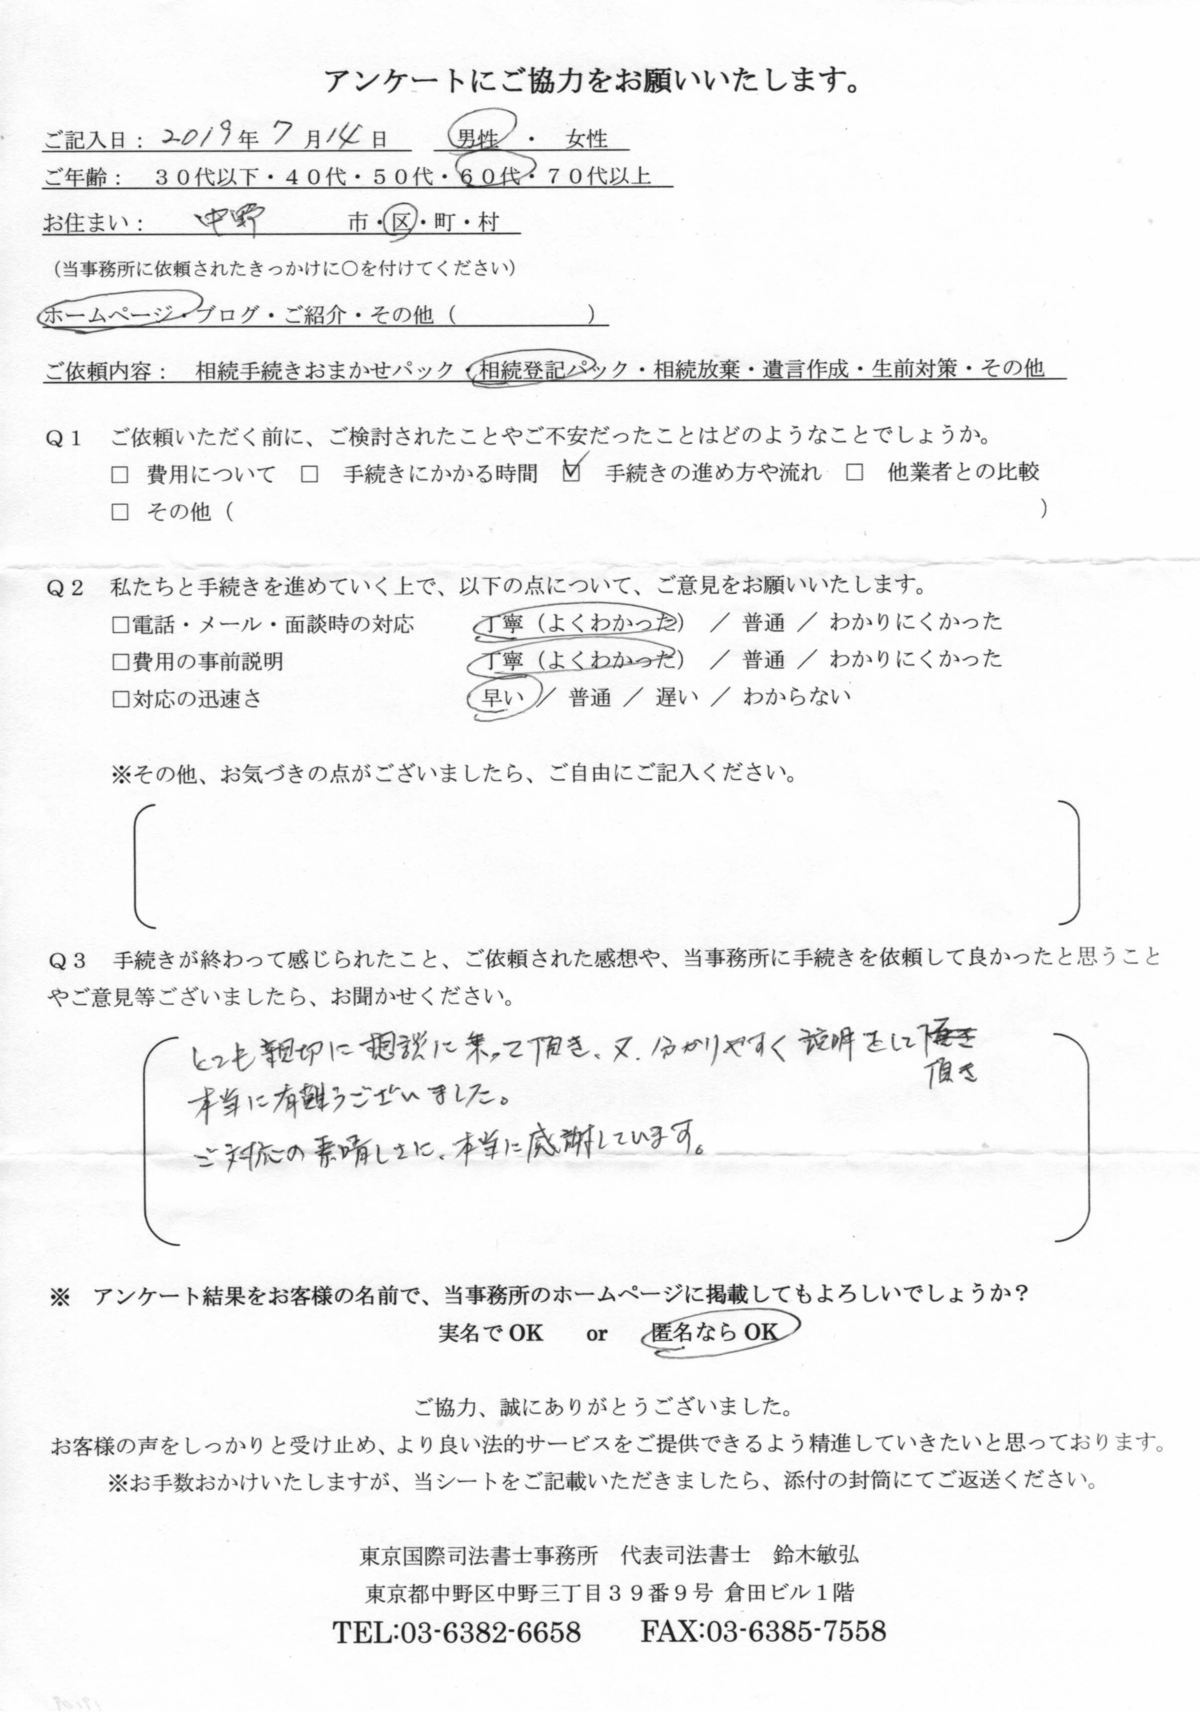 アンケートにご協力をお願いいたします。
ご記入日： 2019年 7 月14日　男性 ・ 女性
ご年齢：　３０代以下・４０代・５０代・６０代・７０代以上
お住まい：　中野　市・区・町・村
（当事務所に依頼されたきっかけに〇を付けてください）
ホームページ・ブログ・ご紹介・その他（　　　　　　）
ご依頼内容：　相続手続きおまかせパック・相続登記パック・相続放棄・遺言作成・生前対策・その他
Ｑ１　ご依頼いただく前に、ご検討されたことやご不安だったことはどのようなことでしょうか。
□ 費用について □ 手続きにかかる時間 ☑ 手続きの進め方や流れ □ 他業者との比較
□ その他（　　　　　　）
Ｑ２　私たちと手続きを進めていく上で、以下の点について、ご意見をお願いいたします。
□電話・メール・面談時の対応　丁寧（よくわかった） ／ 普通 ／ わかりにくかった
□費用の事前説明　丁寧（よくわかった） ／ 普通 ／ わかりにくかった
□対応の迅速さ　早い ／ 普通 ／ 遅い ／ わからない
※その他、お気づきの点がございましたら、ご自由にご記入ください。
Ｑ３　手続きが終わって感じられたこと、ご依頼された感想や、当事務所に手続きを依頼して良かったと思うこと
やご意見等ございましたら、お聞かせください。
とても親切に相談に乗って頂き、又、分かりやすく説明をして
頂き
本当に有難うございました。
ご対応の素晴しさに、本当に感謝しています。
※　アンケート結果をお客様の名前で、当事務所のホームページに掲載してもよろしいでしょうか？
実名で OK　or　匿名なら OK
ご協力、誠にありがとうございました。
お客様の声をしっかりと受け止め、より良い法的サービスをご提供できるよう精進していきたいと思っております。
※お手数おかけいたしますが、当シートをご記載いただきましたら、添付の封筒にてご返送ください。
東京国際司法書士事務所　代表司法書士　鈴木敏弘
東京都中野区中野三丁目３９番９号 倉田ビル１階
TEL:03-6382-6658　FAX:03-6385-7558